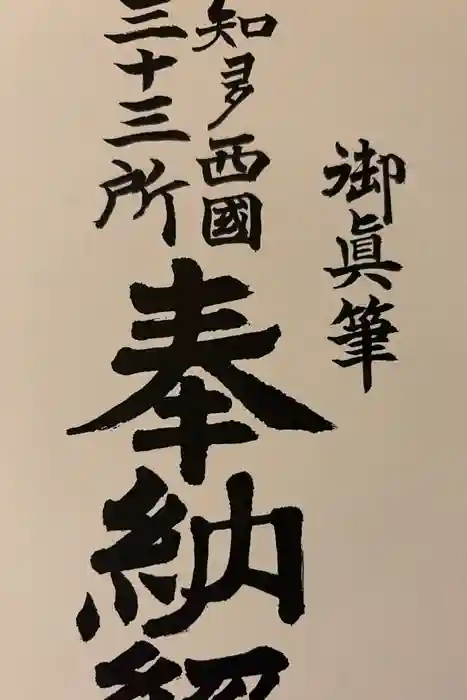 御眞筆
知多西國
三十三所
奉納